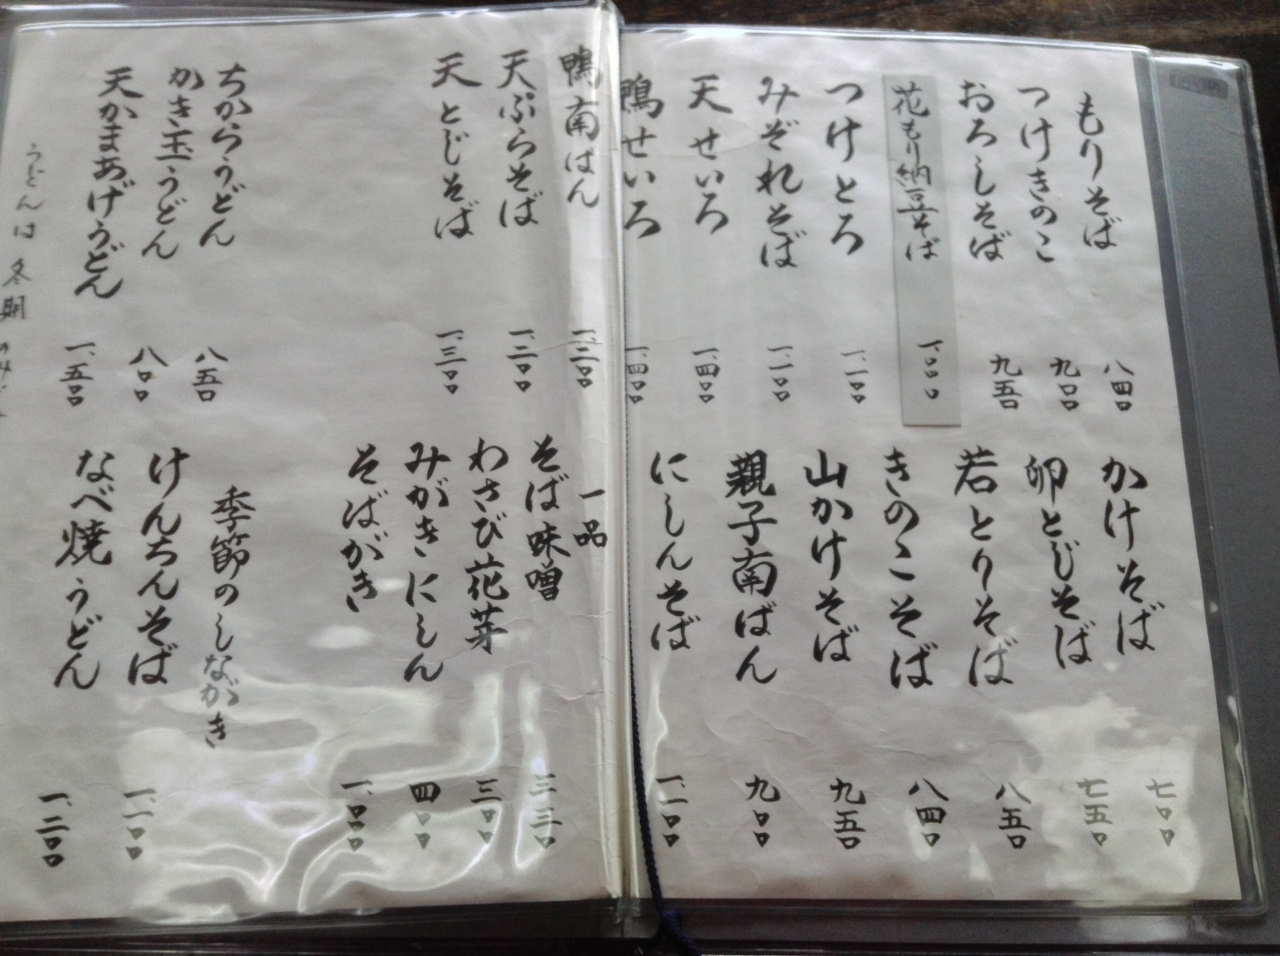 もりそば 八四〇
つけきのこ 九〇〇
おろしそば 九五〇
花もり納豆そば 一、〇〇〇
つけとろ 一、一〇〇
みぞれそば 一、一〇〇
天せいろ 一、四〇〇
鴨せいろ 一、四〇〇
かけそば 七〇〇
卵とじそば 七五〇
若とりそば 八五〇
きのこそば 八四〇
山かけそば 九五〇
親子南ばん 九〇〇
にしんそば 一、一〇〇
鴨南ばん 一、三〇〇
天ぷらそば 一、二〇〇
天とじそば 一、三〇〇
ちからうどん 八五〇
かき玉うどん 八〇〇
天かまあげうどん 一、五〇〇
うどんは冬期のみ
一品
そば味噌 三三〇
わさび花芽 三〇〇
みがきにしん 四〇〇
そばがき 一、〇〇〇
季節のしながき
けんちんそば 一、一〇〇
なべ焼うどん 一、二〇〇